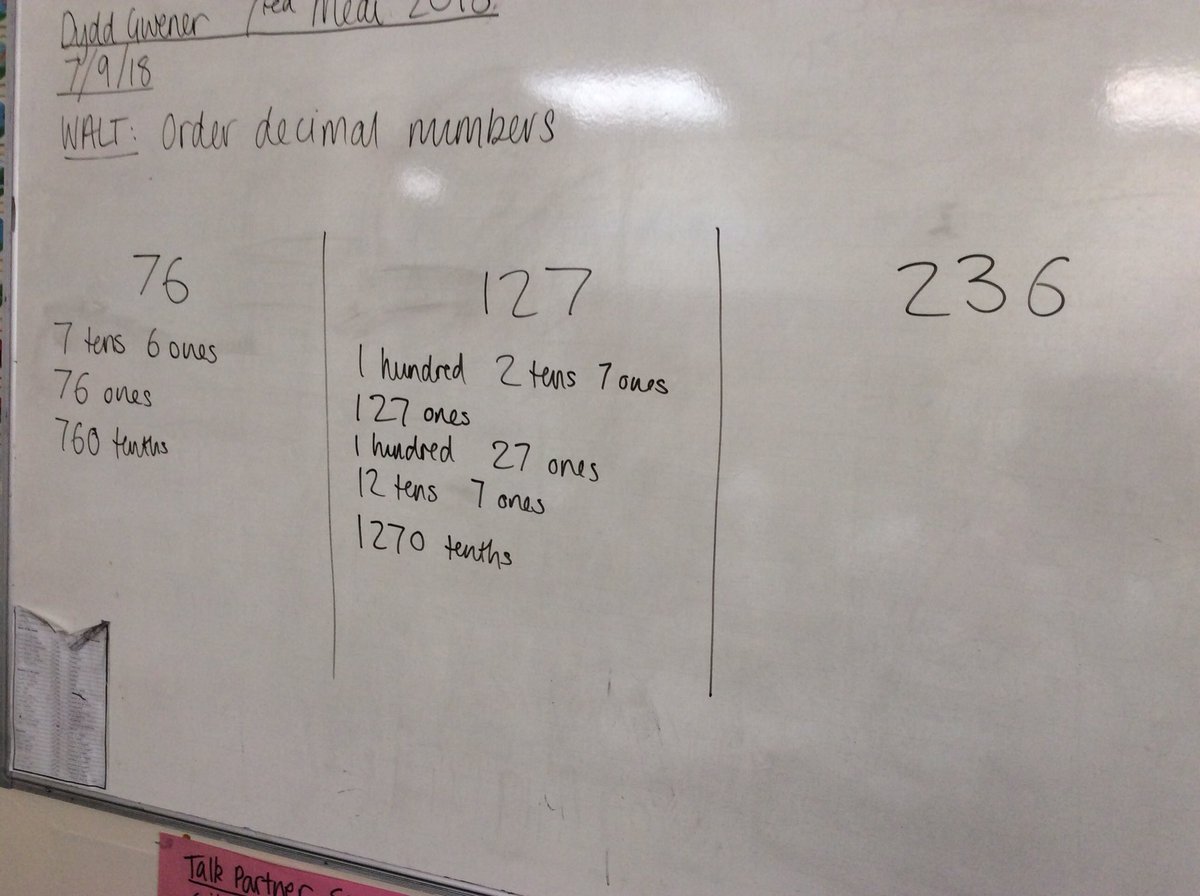 Dydd Gwener 7fed Medi 2018.
7/9/18
WALT: Order decimal numbers
76
7 tens 6 ones
76 ones
760 tenths
127
1 hundred 2 tens 7 ones
127 ones
1 hundred 27 ones
12 tens 7 ones
1270 tenths
236
Talk Partner